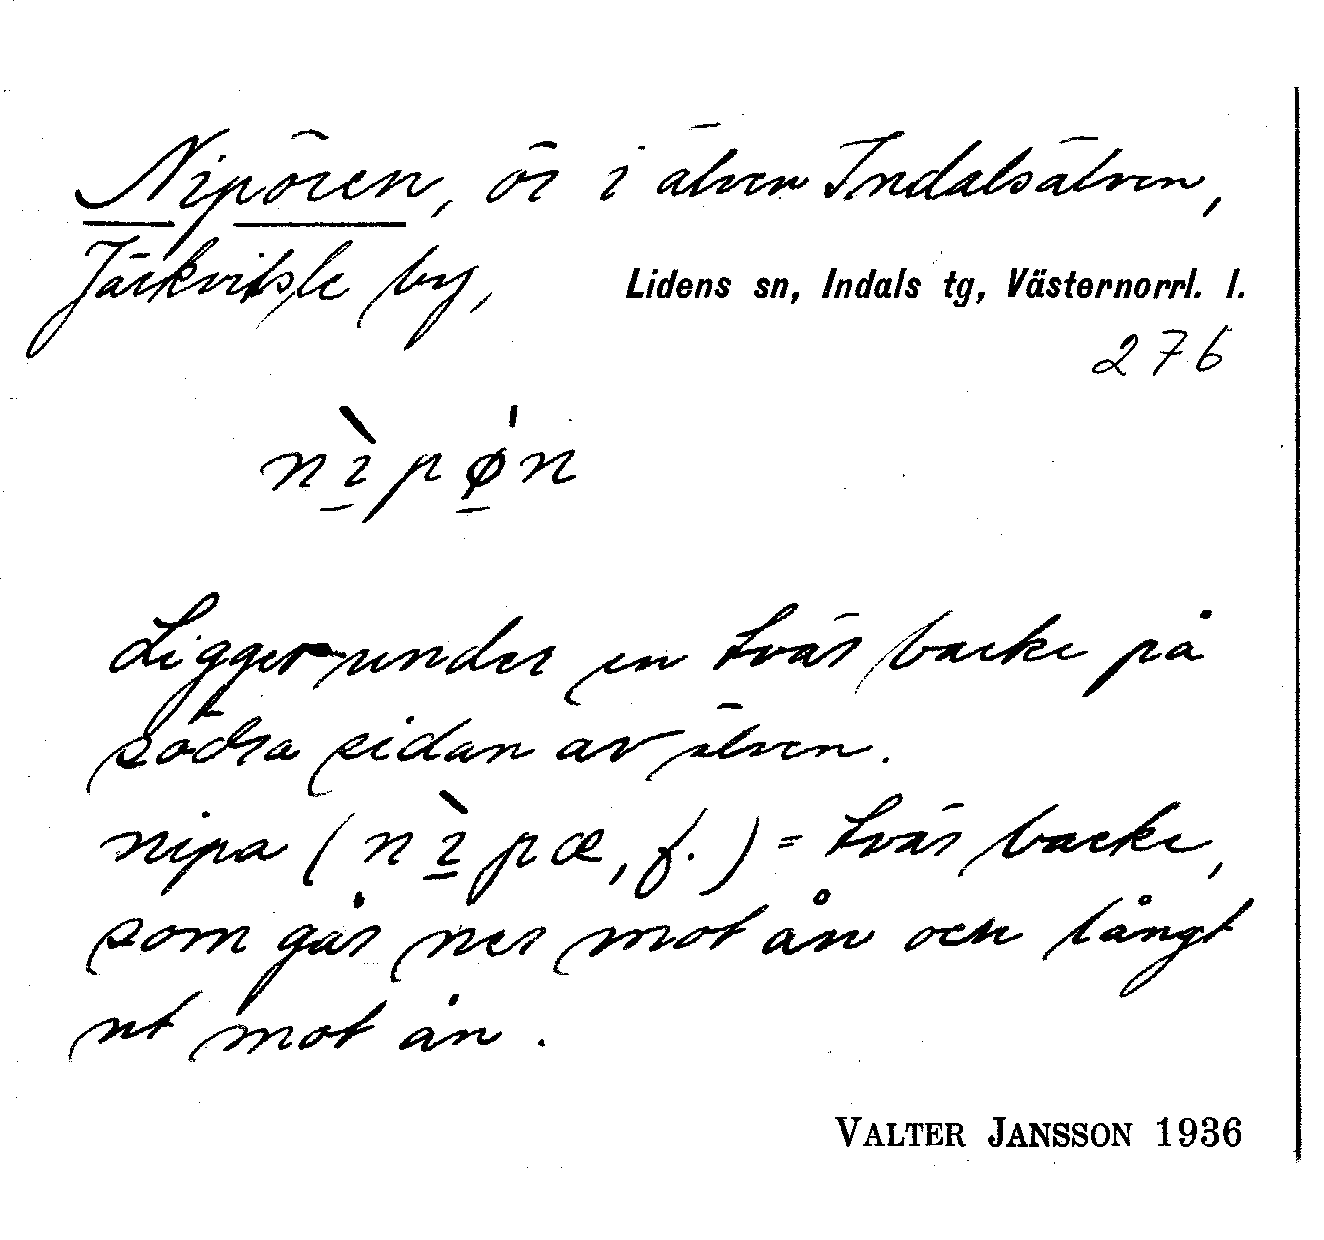 Nipören, ör i älven Indalsälven,
Järkvitsle by, Lidens sn, Indals tg, Västernorrl. l.
276
nìpǿn
Ligger under en tvär backe på
södra sidan av älven.
nipa (nìpα, f.) = tvär backe,
som går ner mot ån och långt
ut mot ån.
VALTER JANSSON 1936